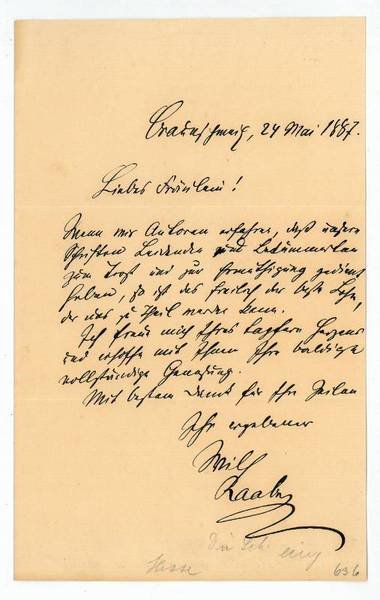 Braunschweig, 24 Mai 1887.
Liebes Fräulein!
Wenn wir Autoren erfahren, daß unsere
Schriften Leidenden und Bekümmerten
zum Trost und zur Ermuthigung gedient
haben, so ist das freilich der beste Lohn,
der uns zu Theil werden kann.
Ich freue mich Ihres tapfern Herzens
und erhoffe mit Ihnen Ihre baldige
vollständige Genesung.
Mit bestem Dank für Ihre Zeilen
Ihr ergebener
Wilh
Raabe
Hesse
636